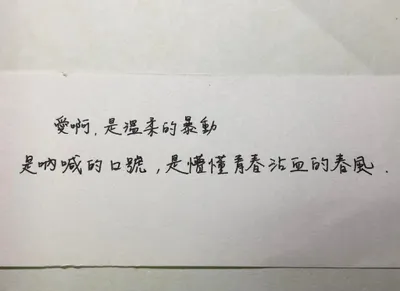 愛啊，是溫柔的暴動
是吶喊的口號，是懵懂青春沾血的春風．